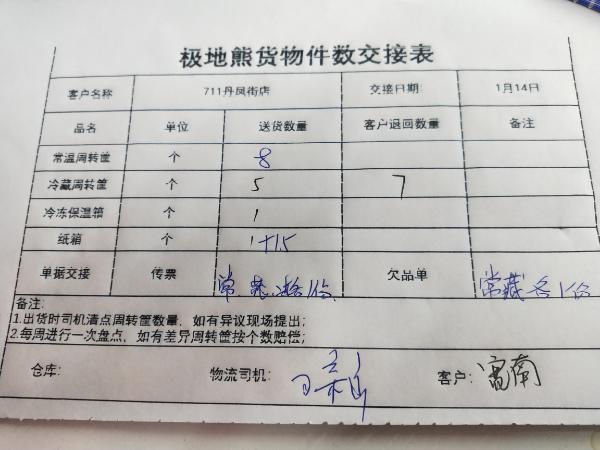 极地熊货物件数交接表
客户名称 711丹凤街店 交接日期: 1月14日
品名 单位 送货数量 客户退回数量 备注
常温周转筐 个 8
冷藏周转筐 个 5 7
冷冻保温箱 个 1
纸箱 个 1+1.5
单据交接 传票 常 欠品单 常藏各1份
备注:
1.出货时司机清点周转筐数量，如有异议现场提出;
2.每周进行一次盘点，如有差异周转筐按个数赔偿;
仓库: 物流司机: 客户: